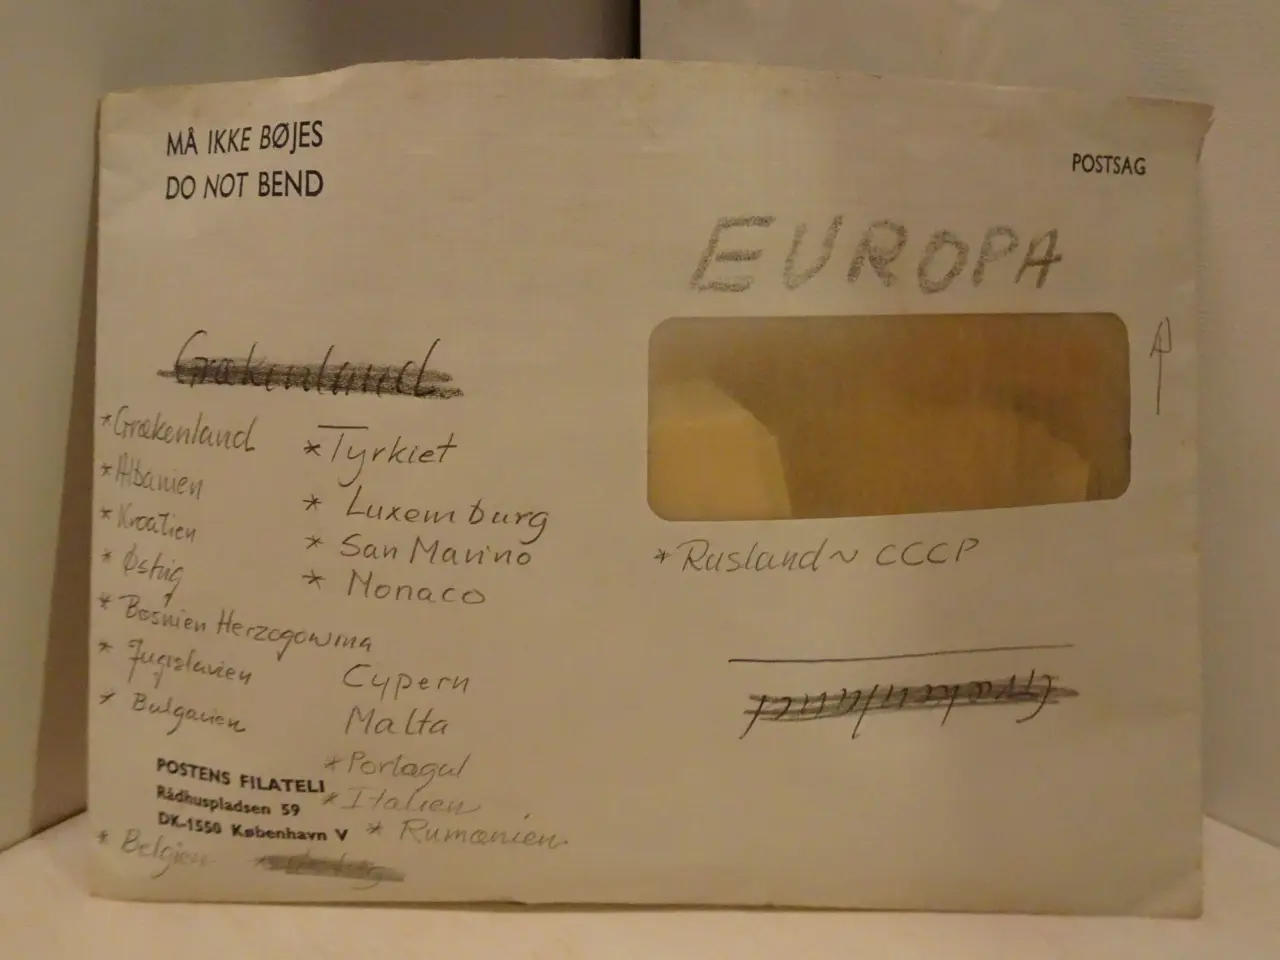 MÅ IKKE BØJES
DO NOT BEND
POSTSAG
EUROPA
Grækenland
* Grækenland
* Albanien
* Kroatien
* Østrig
* Bosnien Herzogowina
* Jugoslavien
* Bulgarien
* Tyrkiet
* Luxemburg
* San Marino
* Monaco
Cypern
Malta
* Portagul
* Italien
* Rumænien
POSTENS FILATELI
Rådhuspladsen 59
DK-1550 København V
* Belgien
* Rusland ~ CCCP
Grækenland